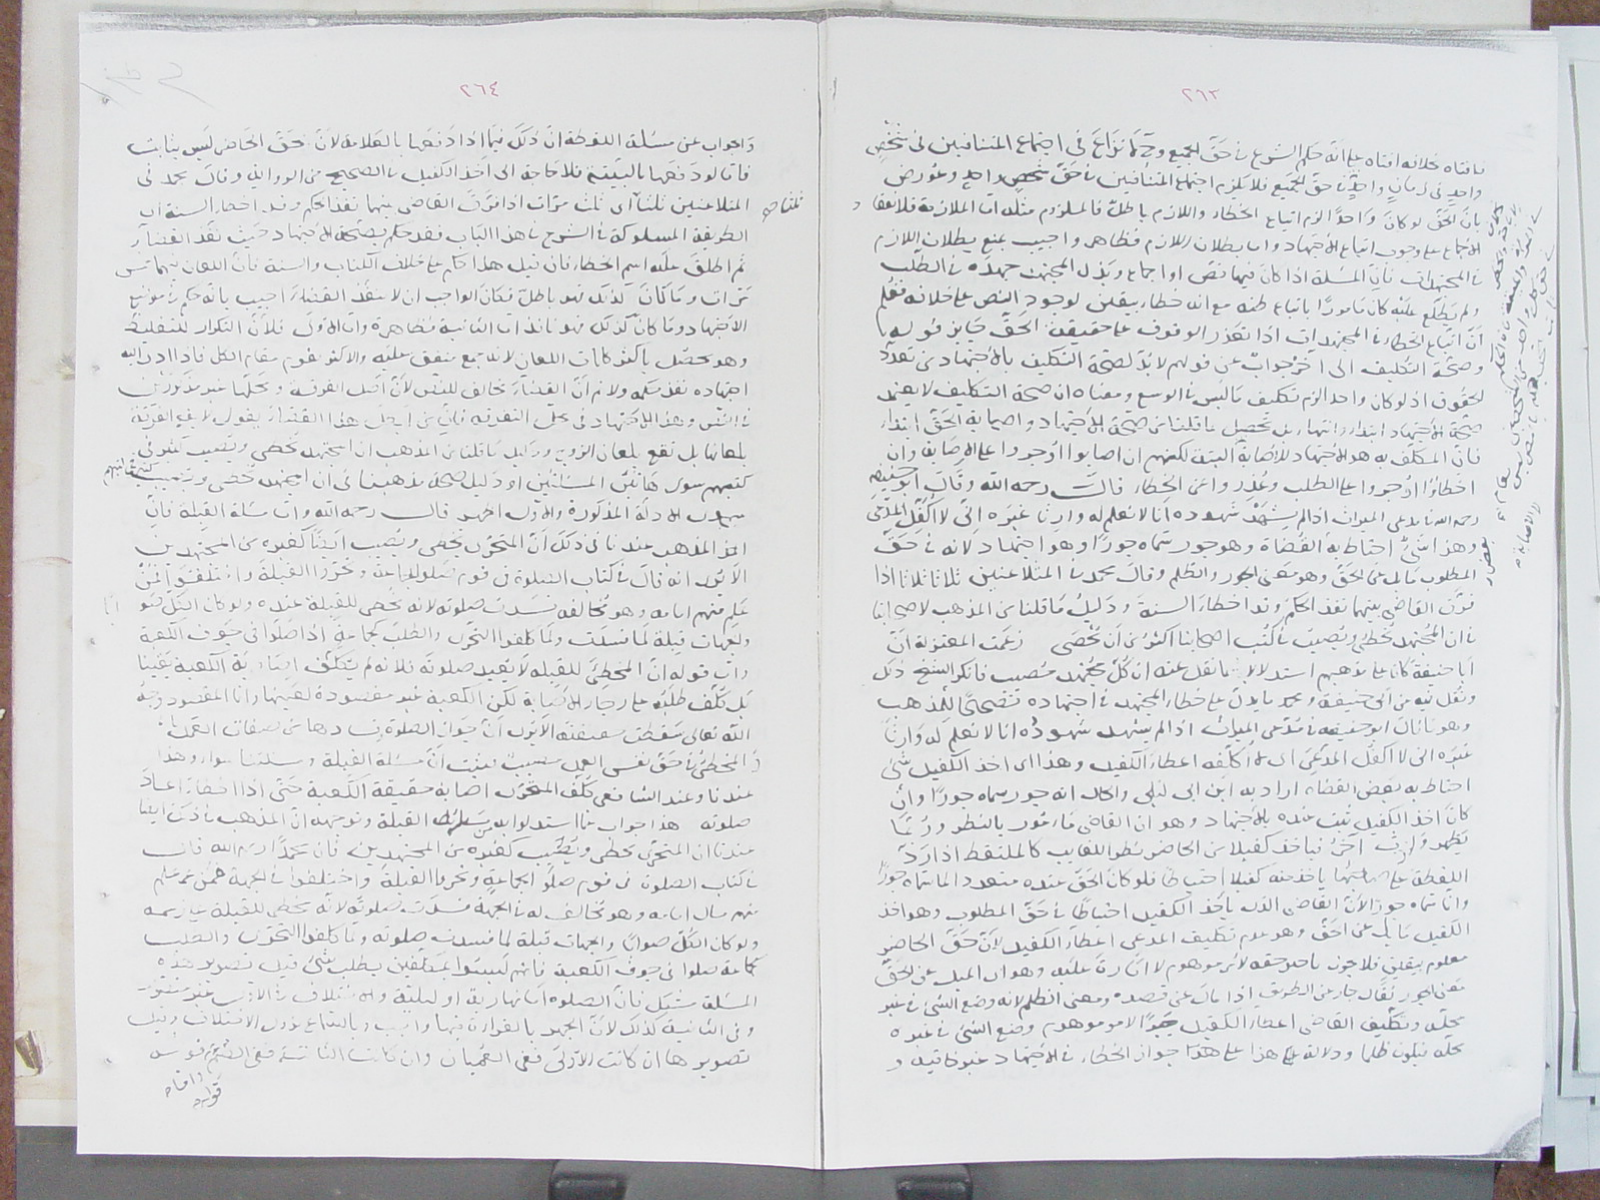 ٢٦٣
فافتاه بخلافه افتاه على انه حكم الشرع في حق الجميع ولا نزاع في اجتماع المتنافيين في شخص
واحد في زمان واحد في حق الجميع فلا يلزم اجتماع المتنافيين في حق شخص واحد وعورض
بان الحق لو كان واحدا لزم اتباع الخطاء واللازم باطل فالملزوم مثله اما الملازمة فلانعقاد
الاجماع على وجوب اتباع الاجتهاد واما بطلان اللازم فظاهر واجيب بمنع بطلان اللازم
في المجتهدات فان المسئلة اذا كان فيها نص او اجماع وبذل المجتهد جهده في الطلب
ولم يطلع عليه كان مامورا باتباع ظنه مع انه خطاء بيقين لوجود النص على خلافه فعلم
ان اتباع الخطاء في المجتهدات اذا تعذر الوقوف على حقيقة الحق جايز قوله
وصحة التكليف الى آخره جواب عن قولهم لا بد لصحة التكليف بالاجتهاد من تعدد
الحقوق اذ لو كان واحدا لزم تكليف ما ليس في الوسع ومعناه ان صحة التكليف لا يعتمد
صحة الاجتهاد ابتداء وانتهاء بل تحصل بما قلنا من صحة الاجتهاد واصابة الحق ابتداء
فان المكلف به هو الاجتهاد للاصابة البتة لكنهم ان اصابوا اوجروا على الاصابة وان
اخطاؤا اوجروا على الطلب وعذروا عن الخطاء قال رحمه الله وقال ابو حنيفة
رحمه الله في مدعى الميراث اذا لم يشهد شهوده انا لا نعلم له وارثا غيره انى لا اكفل المدعى
وهذا شئ احتاط به القضاة وهو جور سماه جورا وهو اجتهاد لانه في حق
المطلوب مايل عن الحق وهو معنى الجور والظلم وقال محمد في المتلاعنين ثلاثا ثلاثا اذا
فرق القاضى بينهما نفذ الحكم وقد اخطاء السنة ودليل ما قلنا من المذهب لاصحابنا
في ان المجتهد يخطئ ويصيب في كتب اصحابنا اكثر من ان يحصى زعمت المعتزلة ان
ابا حنيفة كان على مذهبهم استدلالا بما نقل عنه ان كل مجتهد مصيب فانكر الشيخ ذلك
ونقل فيه عن ابى حنيفة ومحمد ما يدل على خطاء المجتهد في اجتهاده تصحيحا للمذهب
وهو ما قال ابو حنيفة في مدعى الميراث اذا لم يشهد شهوده انا لا نعلم له وارثا
غيره انى لا اكفل المدعى اى لا اكلفه اعطاء الكفيل وهذا اى اخذ الكفيل شئ
احتاط به بعض القضاة اراد به ابن ابى ليلى والحال انه جور سماه جورا وان
كان اخذ الكفيل ثبت عنده بالاجتهاد وهو ان القاضى مامور بالنظر وربما
يظهر وارث آخر فياخذ كفيلا من الحاضر نظرا للغايب كالملتقط اذا رد
اللقطة على صاحبها ياخذ منه كفيلا احتياطا فلو كان الحق عنده متعددا لما سماه جورا
وانما سماه جورا لان القاضى الذى ياخذ الكفيل احتياطا في حق المطلوب وهو اخذ
الكفيل مايل عن الحق وهو عدم تكليف المدعى اعطاء الكفيل لان حق الحاضر
معلوم بيقين فلا يجوز تاخير حقه لامر موهوم لا امارة عليه وهو اى الميل عن الحق
معنى الجور يقال جار عن الطريق اذا مال عن قصده ومعنى الظلم لانه وضع الشئ في غير
محله وتكليف القاضى اعطاء الكفيل جبرا لامر موهوم وضع الشئ في غير
محله فيكون ظلما ودلالة على هذا على هذا جواز الخطاء في الاجتهاد غير خافية و
٢٦٤
واجواب عن مسئلة اللقطة ان ذلك فيما اذا دفعها بالعلامة لان حق الحاضر ليس بثابت
فاما لو دفعها بالبينة فلا حاجة الى اخذ الكفيل في الصحيح من الرواية وقال محمد في
المتلاعنين ثلثا اى ثلث مرات اذا فرق القاضى بينهما نفذ الحكم وقد اخطاء السنة اى
الطريقة المسلوكة في الشرع في هذا الباب فقد حكم بصحة الاجتهاد حيث نفذ القضاء
ثم اطلق عليه اسم الخطاء فان قيل هذا حكم على خلاف الكتاب والسنة فان اللعان فيهما خمس
مرات وما كان كذلك فهو باطل فكان الواجب ان لا ينفذ القضاء اجيب بانه حكم في موضع
الاجتهاد وما كان كذلك فهو نافذ اما الثانية فظاهرة واما الاولى فلان التكرار للتغليظ
وهو يحصل باكثر كلمات اللعان لانه جمع متفق عليه والاكثر يقوم مقام الكل فاذا ادى اليه
اجتهاده نفذ حكمه ولا نم ان القضاء مخالف للنص لان اصل الفرقة ومحلها غير مذكورين
في النص وهذا الاجتهاد في محل التفرقة فان من ابطل هذا القضاء يقول لا تقع الفرقة
بلعانها بل تقع بلعان الزوج ودليل ما قلنا من المذهب ان المجتهد يخطئ ويصيب كثير في
كتبهم سوى هاتين المسئلتين او دليل صحة مذهبنا في ان المجتهد يخطئ ويصيب
سوى الادلة المذكورة والاول اظهر قال رحمه الله واما مسئلة القبلة فان
المذهب عندنا في ذلك ان المتحرى يخطئ ويصيب ايضا كغيره من المجتهدين
الا ترى انه قال في كتاب الصلوة في قوم صلوا جماعة وتحروا القبلة واختلفوا فمن
علم منهم امامه وهو مخالفه فسدت صلوته لانه مخطئ للقبلة عنده ولو كان الكل صوابا
والجهات قبلة لما فسدت ولما كلفوا التحرى والطلب كجماعة اذا صلوا في جوف الكعبة
واما قوله ان المخطئ للقبلة لا يعيد صلوته فلانه لم يتكلف اصابة الكعبة يقينا
بل كلف طلبه على رجاء الاصابة لكن الكعبة غير مقصودة لعينها وانما المقصود وجه
الله تعالى الا ترى ان جواز الصلوة وفسادها من صفات العمل
والمخطئ في حق نفس العمل مصيب فثبت ان مسئلة القبلة ومسئلتنا سواء وهذا
عندنا وعند الشافعى كلف المتحرى اصابة حقيقة الكعبة حتى اذا اخطاء اعاد
صلوته هذا جواب عما استدلوا به من مسئلة القبلة وتوجيهه ان المذهب في ذلك ايضا
عندنا ان المتحرى يخطئ ويصيب كغيره من المجتهدين فان محمدا رحمه الله قال
في كتاب الصلوة في قوم صلوا بجماعة وتحروا القبلة واختلفوا في الجهة فمن علم
منهم حال امامه وهو مخالف له في الجهة فسدت صلوته لانه مخطئ للقبلة على زعمه
ولو كان الكل صوابا والجهات قبلة لما فسدت صلوته ولما كلفوا التحرى والطلب
كجماعة صلوا في جوف الكعبة فانهم ليسوا بمكلفين بطلب شئ قيل تصوير هذه
المسئلة مشكل فان الصلوة اما نهارية او ليلية والاختلاف في الاول غير متصور
وفى الثانية كذلك لان الجهر بالقراءة فيها واجب وبالسماع يزول الاختلاف وقيل
تصويرها ان كانت الاولى ففى العميان وان كانت الثانية ففى